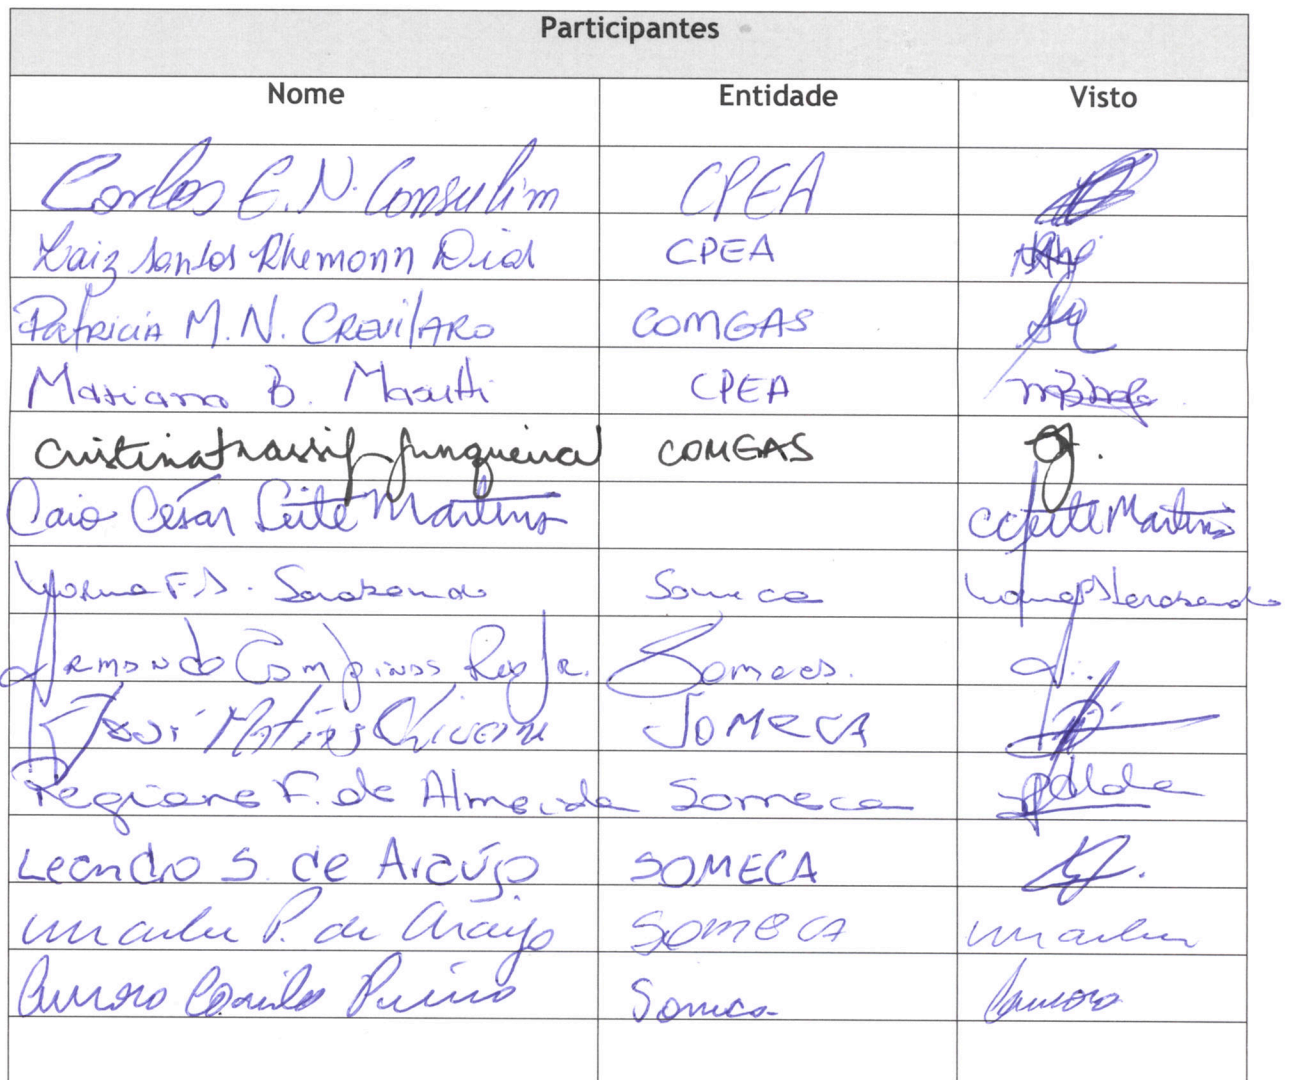 Participantes
Nome Entidade Visto
Carlos E. N. Consulim CPEA
Laiz Santos Rhemonn Dias CPEA
Patricia M. N. CREVILARO COMGAS
Mariana B. Masutti CPEA
Cristina Nassif Junqueira COMGAS
Caio César Leite Martins CCLeite Martins
F.S. Someca
Armando Campinas Reis Jr. Someca.
José Matias Oliveira SOMECA
Regiane F. de Almeida Someca
Leandro S. de Araújo SOMECA
P. de Araújo SOMECA
Aurora Camilo Someca Aurora